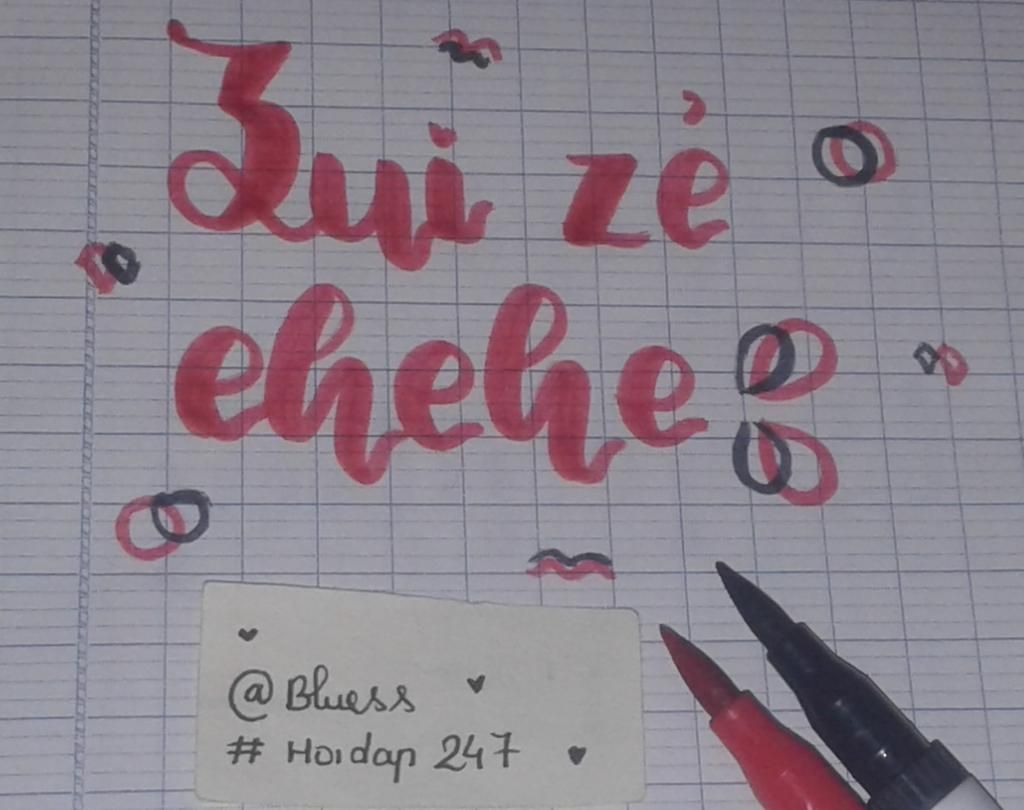 Zui zẻ
ehehe
@Bluess
# Hoidap 247